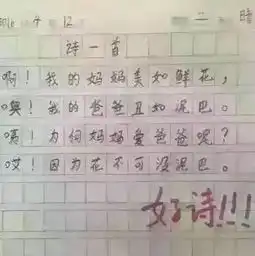 12
诗一首
啊！我的妈妈美如鲜花，
噢！我的爸爸丑如泥巴。
嘎！为何妈妈爱爸爸呢？
哎！因为花不可没泥巴。
好诗!!!